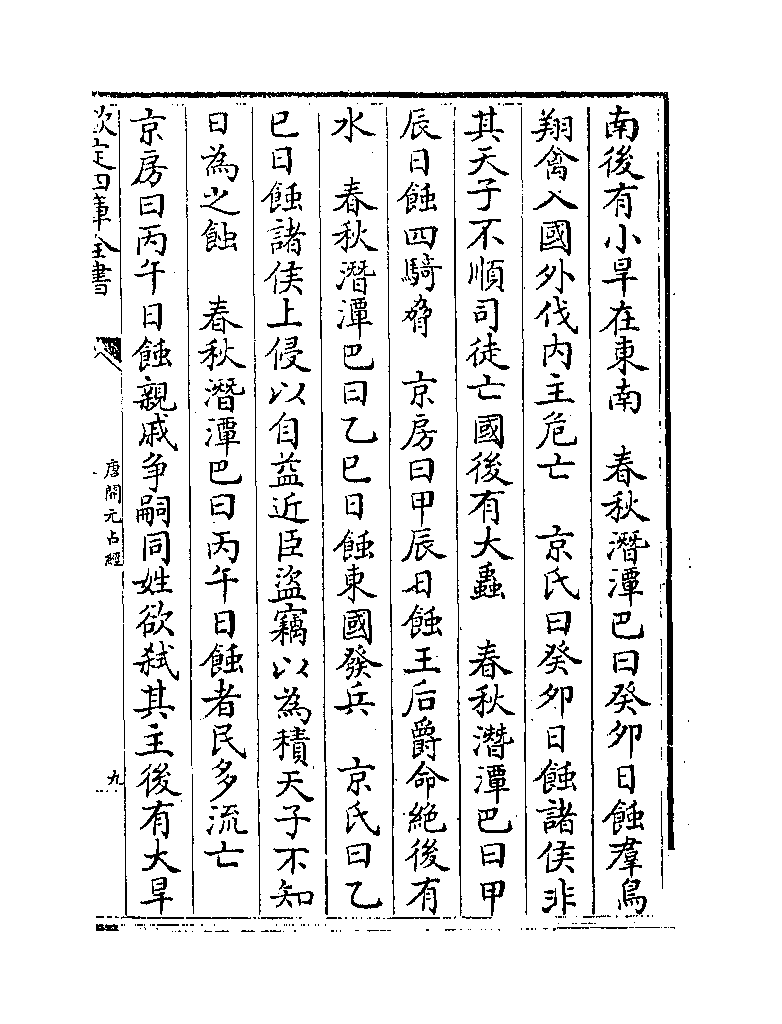 南後有小旱在東南　春秋潛潭巴曰癸夘日蝕羣鳥
翔禽入國外伐内主危亡　京氏曰癸夘日蝕諸侯非
其天子不順司徒亡國後有大蟲　春秋潛潭巴曰甲
辰日蝕四騎脅　京房曰甲辰日蝕王后爵命絶後有
水　春秋潛潭巴曰乙巳日蝕東國發兵　京氏曰乙
巳日蝕諸侯上侵以自益近臣盜竊以為積天子不知
日為之蝕　春秋潛潭巴曰丙午日蝕者民多流亡
京房曰丙午日蝕親戚争嗣同姓欲弑其主後有大旱
欽定四庫全書
唐開元占經
九